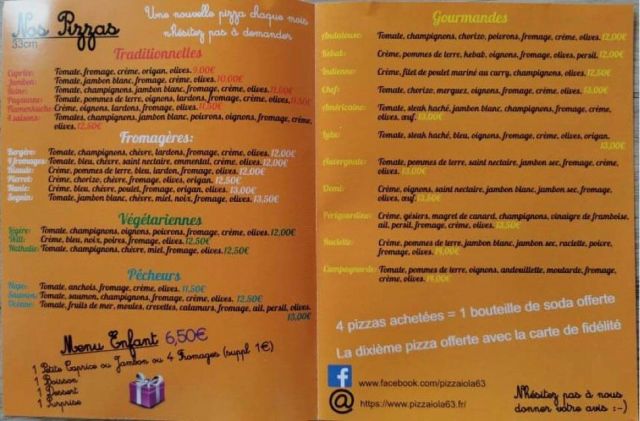 Nos Pizzas
33cm
Une nouvelle pizza chaque mois
n'hésitez pas à demander
Traditionnelles
Caprice: Tomate, fromage, crème, origan, olives. 9,00€
Jambon: Tomate, jambon blanc, fromage, crème, olives. 10,00€
Reine: Tomate, champignons, jambon blanc, fromage, crème, olives. 11,50€
Paysanne: Tomate, pommes de terre, oignons, lardons, fromage, crème, olives. 11,50€
Flamenkuche: Crème, oignons, lardons, fromage, olives. 11,50€
4 saisons: Tomates, champignons, jambon blanc, poivrons, oignons, fromage, crème,
olives. 12,50€
Fromagères:
Bergère: Tomate, champignons, chèvre, lardons, fromage, crème, olives. 12,00€
4 fromages: Tomate, bleu, chèvre, saint nectaire, emmental, crème, olives. 12,00€
Crème, pommes de terre, bleu, lardon, fromage, olives. 12,00€
Pierrot: Crème, chorizo, chèvre, fromage, origan, olives. 12,50€
Nanie: Crème, bleu, chèvre, poulet, fromage, origan, olives. 13,00€
Seguin: Tomate, jambon blanc, chèvre, miel, noix, fromage, olives. 13,50€
Végétariennes
Légère: Tomate, champignons, oignons, poivrons, fromage, crème, olives. 12,00€
Will: Crème, bleu, noix, poires, fromage, olives. 12,50€
Nathalie: Tomate, champignons, chèvre, miel, fromage, olives. 12,50€
Pêcheurs
Napo: Tomate, anchois, fromage, crème, olives. 11,50€
Saumon: Tomate, saumon, champignons, fromage, crème, olives. 12,50€
Océane: Tomate, fruits de mer, moules, crevettes, calamars, fromage, ail, persil, olives.
13,00€
Menu Enfant 6,50€
1 Petite Caprice ou Jambon ou 4 Fromages (suppl 1€)
1 Boisson
1 Dessert
1 Surprise
Gourmandes
Andalouse: Tomate, champignons, chorizo, poivrons, fromage, crème, olives. 12,00€
Kebab: Crème, pommes de terre, kebab, oignons, fromage, olives, persil. 12,00€
Indienne: Crème, filet de poulet mariné au curry, champignons, olives. 12,50€
Chef: Tomate, chorizo, merguez, oignons, fromage, crème, olives. 13,00€
Américaine: Tomate, steak haché, jambon blanc, champignons, fromage, crème,
olives, œuf. 13,00€
Tomate, steak haché, bleu, oignons, fromage, crème, olives, origan.
13,00€
Auvergnate: Tomate, pommes de terre, saint nectaire, jambon sec, fromage, crème,
olives. 13,00€
Domi: Crème, oignons, saint nectaire, jambon blanc, jambon sec, fromage,
olives, œuf. 13,50€
Périgourdine: Crème, gésiers, magret de canard, champignons, vinaigre de framboise,
ail, persil, fromage, crème, olives. 13,50€
Raclette: Crème, pommes de terre, jambon blanc, jambon sec, raclette, poivre,
fromage, olives. 14,00€
Campagnarde: Tomate, pommes de terre, oignons, andouillette, moutarde, fromage,
crème, olives. 14,00€
4 pizzas achetées = 1 bouteille de soda offerte
La dixième pizza offerte avec la carte de fidélité
www.facebook.com/pizzaiola63
https://www.pizzaiola63.fr/
N'hésitez pas à nous
donner votre avis :-)